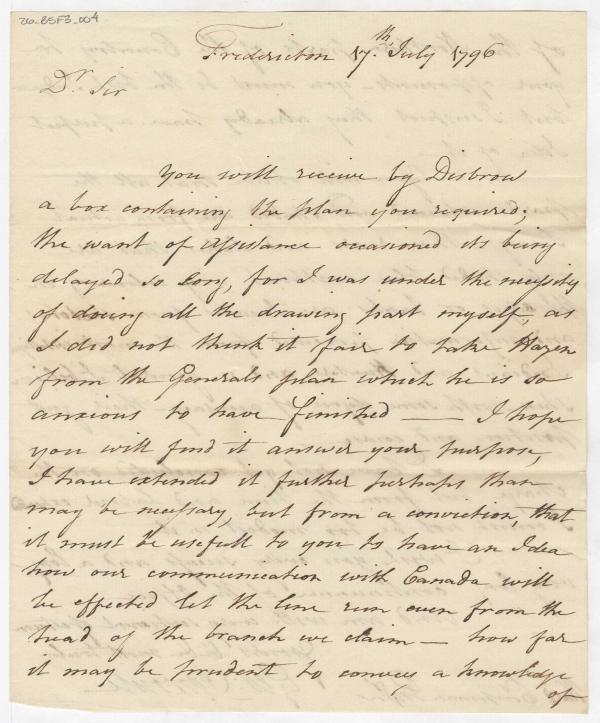 26-BSF3-004
Fredericton 17.th July 1796
Dr Sir
You will receive by Disbrow
a box containing the plan you required;
the want of assistance occasioned its being
delayed so long, for I was under the necessity
of doing all the drawing part myself, as
I did not think it fair to take Hazen
from the Generals plan which he is so
anxious to have finished — I hope
you will find it answer your purpose,
I have extended it further perhaps than
may be necessary, but from a conviction, that
it must be usefull to you to have an Idea
how our communication with Canada will
be effected let the line run even from the
head of the branch we claim — how far
it may be prudent to convey a knowledge
of